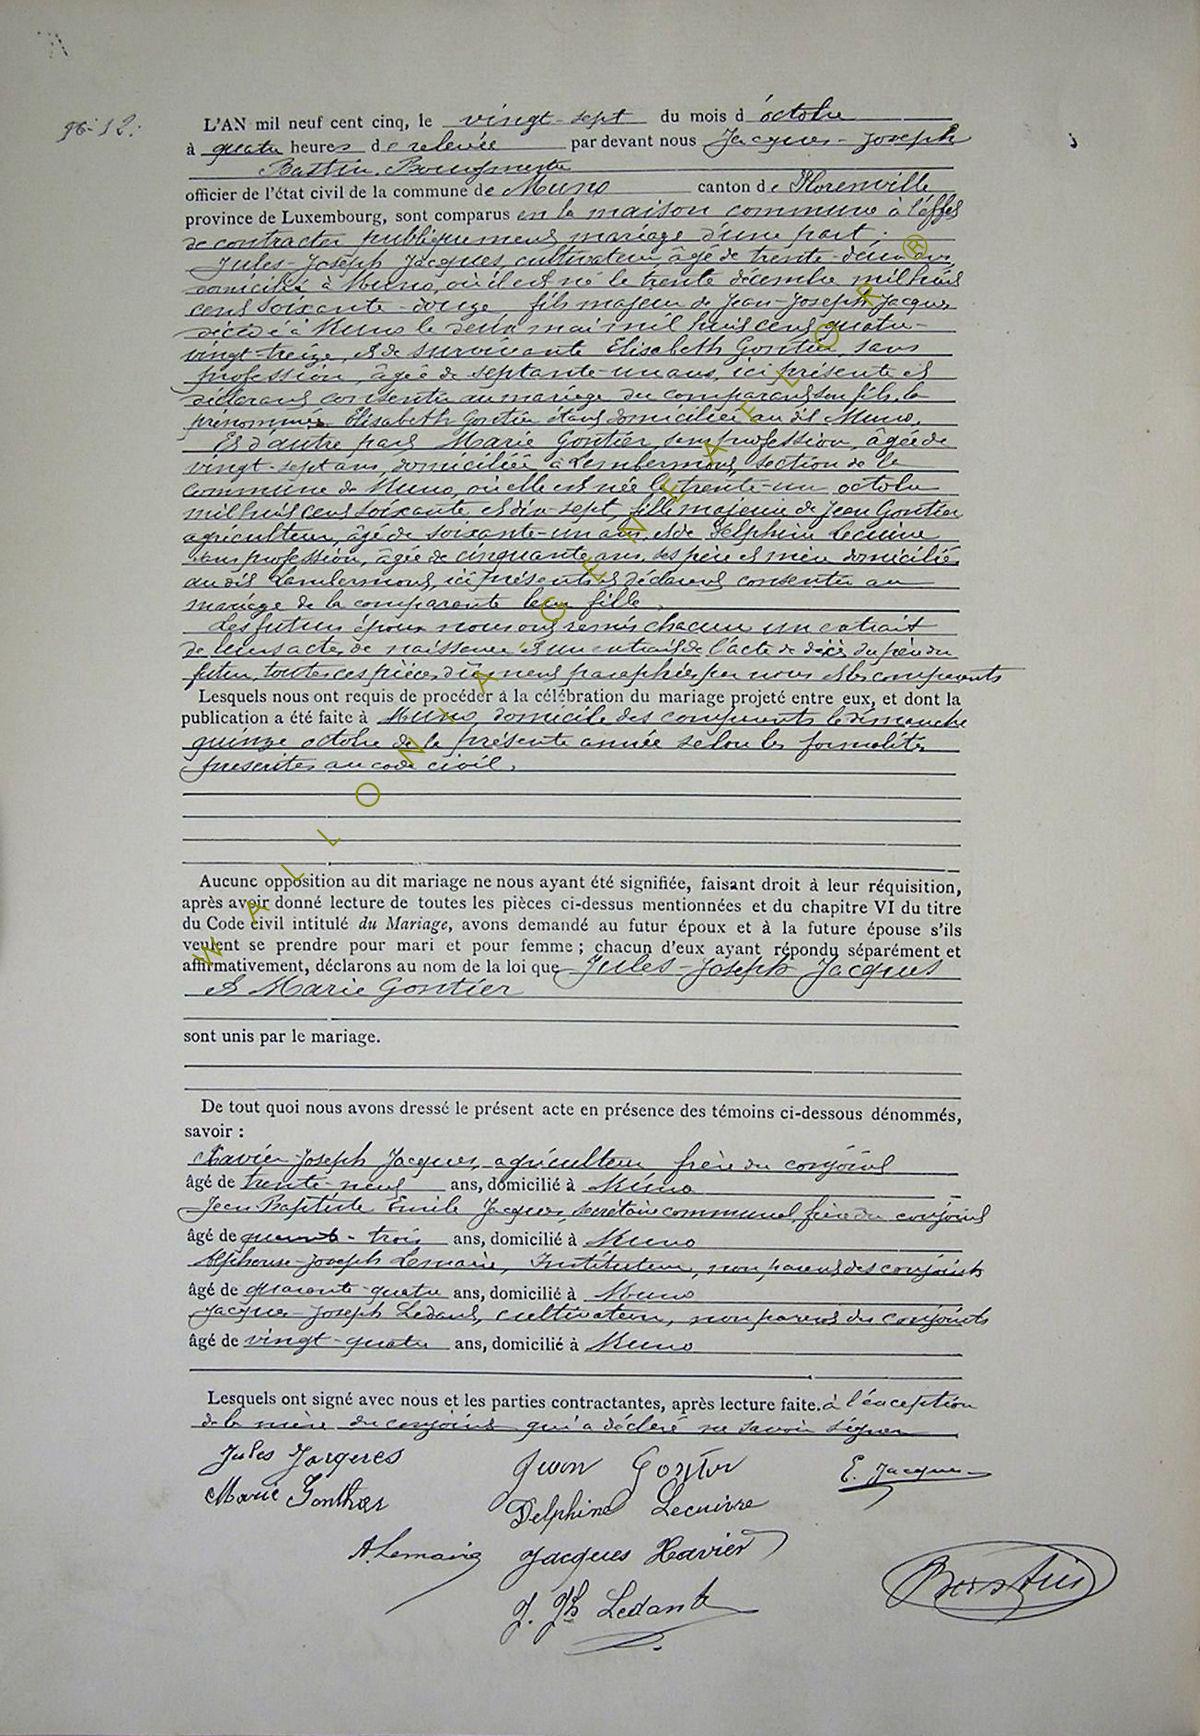 96-12.
L'AN mil neuf cent cinq, le vingt-sept du mois d'octobre
à quatre heures de relevée par devant nous Jacques-Joseph
Bastin, Bourgmestre
officier de l'état civil de la commune de Muno canton de Florenville
province de Luxembourg, sont comparus en la maison commune à l'effet
de contracter publiquement mariage d'une part :
Jules-Joseph Jacques, cultivateur, âgé de trente-deux ans,
domicilié à Muno, où il est né le trente décembre mil huit
cent soixante-douze, fils majeur de Jean-Joseph Jacques
décédé à Muno le deux mai mil huit cent quatre-
vingt-treize, et de survivante Elisabeth Gontier, sans
profession, âgée de septante-un ans, ici présente et
déclarant consentir au mariage du comparant son fils, la
prénommée Elisabeth Gontier étant domiciliée au dit Muno.
Et d'autre part Marie Gontier, sans profession, âgée de
vingt-sept ans, domiciliée à Lambermont, section de la
commune de Muno, où elle est née le trente-un octobre
mil huit cent soixante et dix-sept, fille majeure de Jean Gontier
agriculteur, âgé de soixante-un ans, et de Delphine Lecuivre
sans profession, âgée de cinquante ans, ses père et mère domiciliés
au dit Lambermont, ici présents et déclarant consentir au
mariage de la comparante leur fille.
Les futurs époux nous ont remis chacun un extrait
de leurs actes de naissance et un extrait de l'acte de décès du père du
futur, toutes ces pièces dûment paraphées par nous et les comparants
Lesquels nous ont requis de procéder à la célébration du mariage projeté entre eux, et dont la
publication a été faite à Muno, domicile des comparants le dimanche
quinze octobre de la présente année selon les formalités
prescrites au code civil.
Aucune opposition au dit mariage ne nous ayant été signifiée, faisant droit à leur réquisition,
après avoir donné lecture de toutes les pièces ci-dessus mentionnées et du chapitre VI du titre
du Code civil intitulé du Mariage, avons demandé au futur époux et à la future épouse s'ils
veulent se prendre pour mari et pour femme ; chacun d'eux ayant répondu séparément et
affirmativement, déclarons au nom de la loi que Jules-Joseph Jacques
et Marie Gontier
sont unis par le mariage.
De tout quoi nous avons dressé le présent acte en présence des témoins ci-dessous dénommés,
savoir :
Xavier-Joseph Jacques, agriculteur frère du conjoint
âgé de trente-neuf ans, domicilié à Muno
Jean-Baptiste Emile Jacques, secrétaire communal, frère du conjoint
âgé de quarante-trois ans, domicilié à Muno
Alphonse-Joseph Lemaire, Instituteur, non parent des conjoints
âgé de quarante-quatre ans, domicilié à Muno
Jacques-Joseph Ledant, cultivateur, non parent des conjoints
âgé de vingt-quatre ans, domicilié à Muno
Lesquels ont signé avec nous et les parties contractantes, après lecture faite. à l'exception
de la mère du conjoint qui a déclaré ne savoir signer
Jules Jacques Jean Gontier E. Jacques
Marie Gonthier Delphine Lecuivre
A. Lemaire Jacques Xavier
J. Jh Ledant Bastin
WALLONIA GENEAFLOR ®